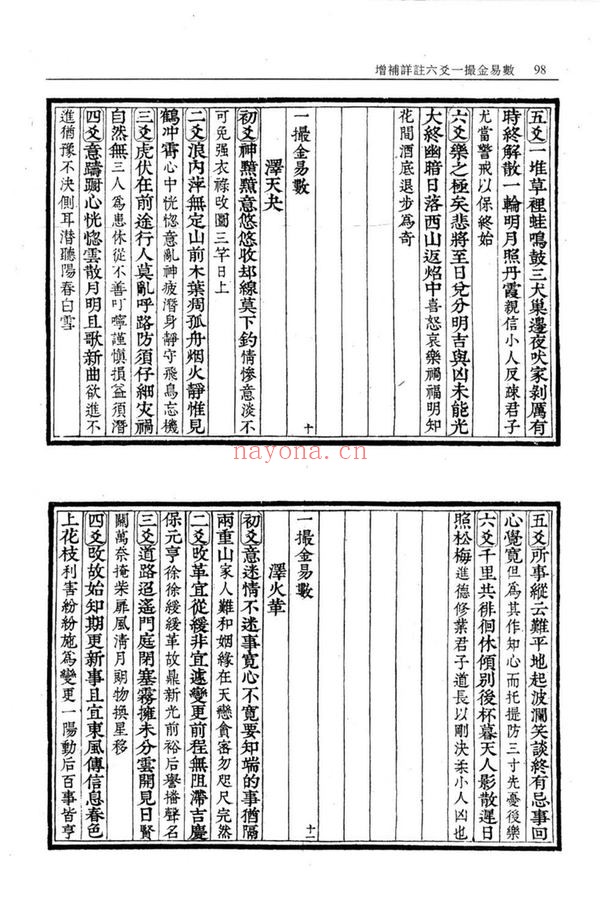 增補詳註六爻一撮金易數 98
五爻一堆草裡蛙鳴鼓三犬巢邊夜吠家剝厲有
時終解散一輪明月照丹霞親信小人反疎君子
尤當警戒以保終始
六爻樂之極矣悲將至日兌分明吉與凶未能光
大終幽暗日落西山返焰中喜怒哀樂禍福明知
花間酒底退步為奇
一撮金易數
十
澤天夬
初爻神黯黯意悠悠收却線莫下釣情慘意淡不
可免强衣祿改圖三竿日上
二爻浪內萍無定山前木葉凋孤舟烟火靜惟見
鶴冲霄心中恍惚意亂神疲潛身靜守飛鳥忘機
三爻虎伏在前途行人莫亂呼路防須仔細灾禍
自然無三人為患休從不善叮嚀謹慎損益須潛
四爻意躊躕心恍惚雲散月明且歌新曲欲進不
進猶豫不決側耳潛聽陽春白雪
nayona.cn
五爻所事縱云難平地起波瀾笑談終有忌事回
心覺寬但為其作知心而托提防三寸先憂後樂
六爻千里共徘徊休傾別後杯暮天人影散遲日
照松梅進德修業君子道長以剛決柔小人凶也
一撮金易數
十一
澤火革
初爻意迷情不迷事寬心不寬要知端的事猶隔
兩重山家人難和姻緣在天戀貪客勿咫尺完然
二爻改革宜從緩非宜遽變更前程無阻滯吉慶
保元亨徐徐緩緩革故鼎新光前裕后譽播聲名
三爻道路迢遙門庭閉塞霧擁未分雲開見日賢
關萬奈掩柴扉風淸月朗物換星移
四爻改故始知期更新事且宜東風傳信息春色
上花枝利害紛紛施為變更一陽動后百事皆亨